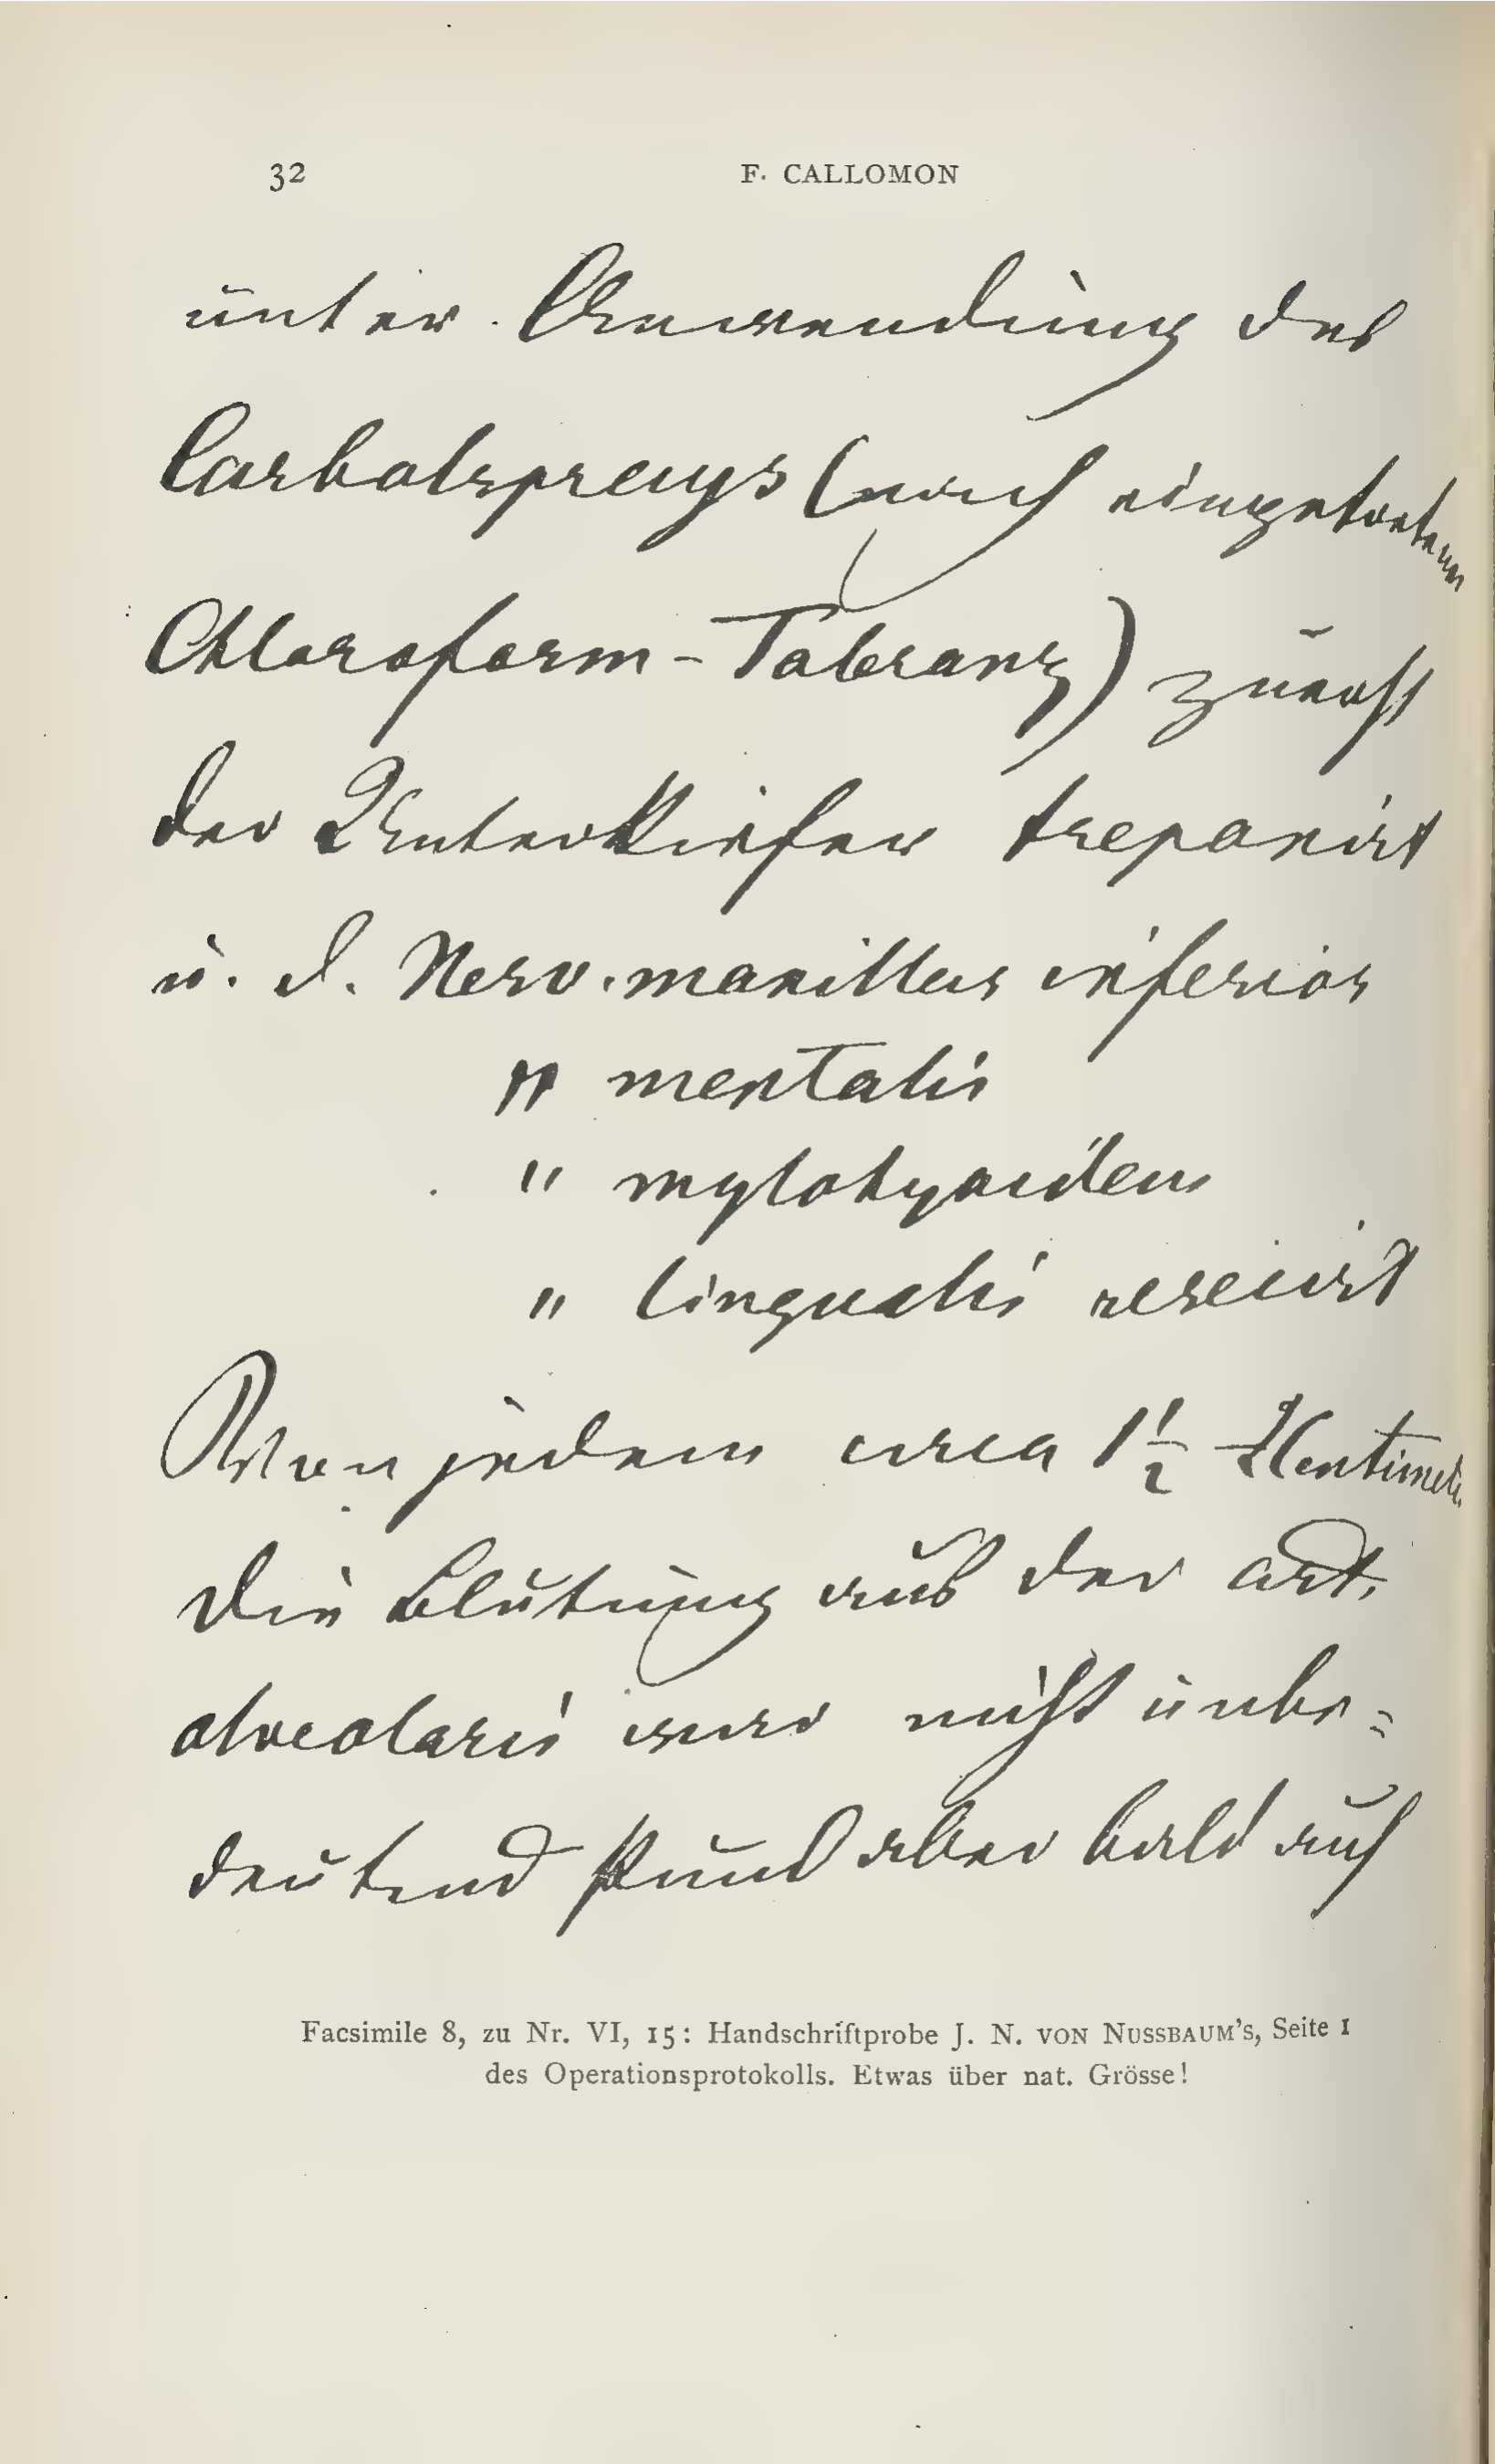 32 F. CALLOMON
unter Anwendung des
Carbolsprays (nach eingetretener
Chloroform-Toleranz) zuerst
der Unterkiefer trepanirt
u. d. Nerv. maxillar inferior
" mentalis
" mylohyoideus
" lingualis resecirt
Von jedem circa 1½ Centimeter
Die Blutung aus der art.
alveolaris war nicht unbe=
deutend stund aber bald auf
Facsimile 8, zu Nr. VI, 15: Handschriftprobe J. N. VON NUSSBAUM's, Seite 1
des Operationsprotokolls. Etwas über nat. Grösse!